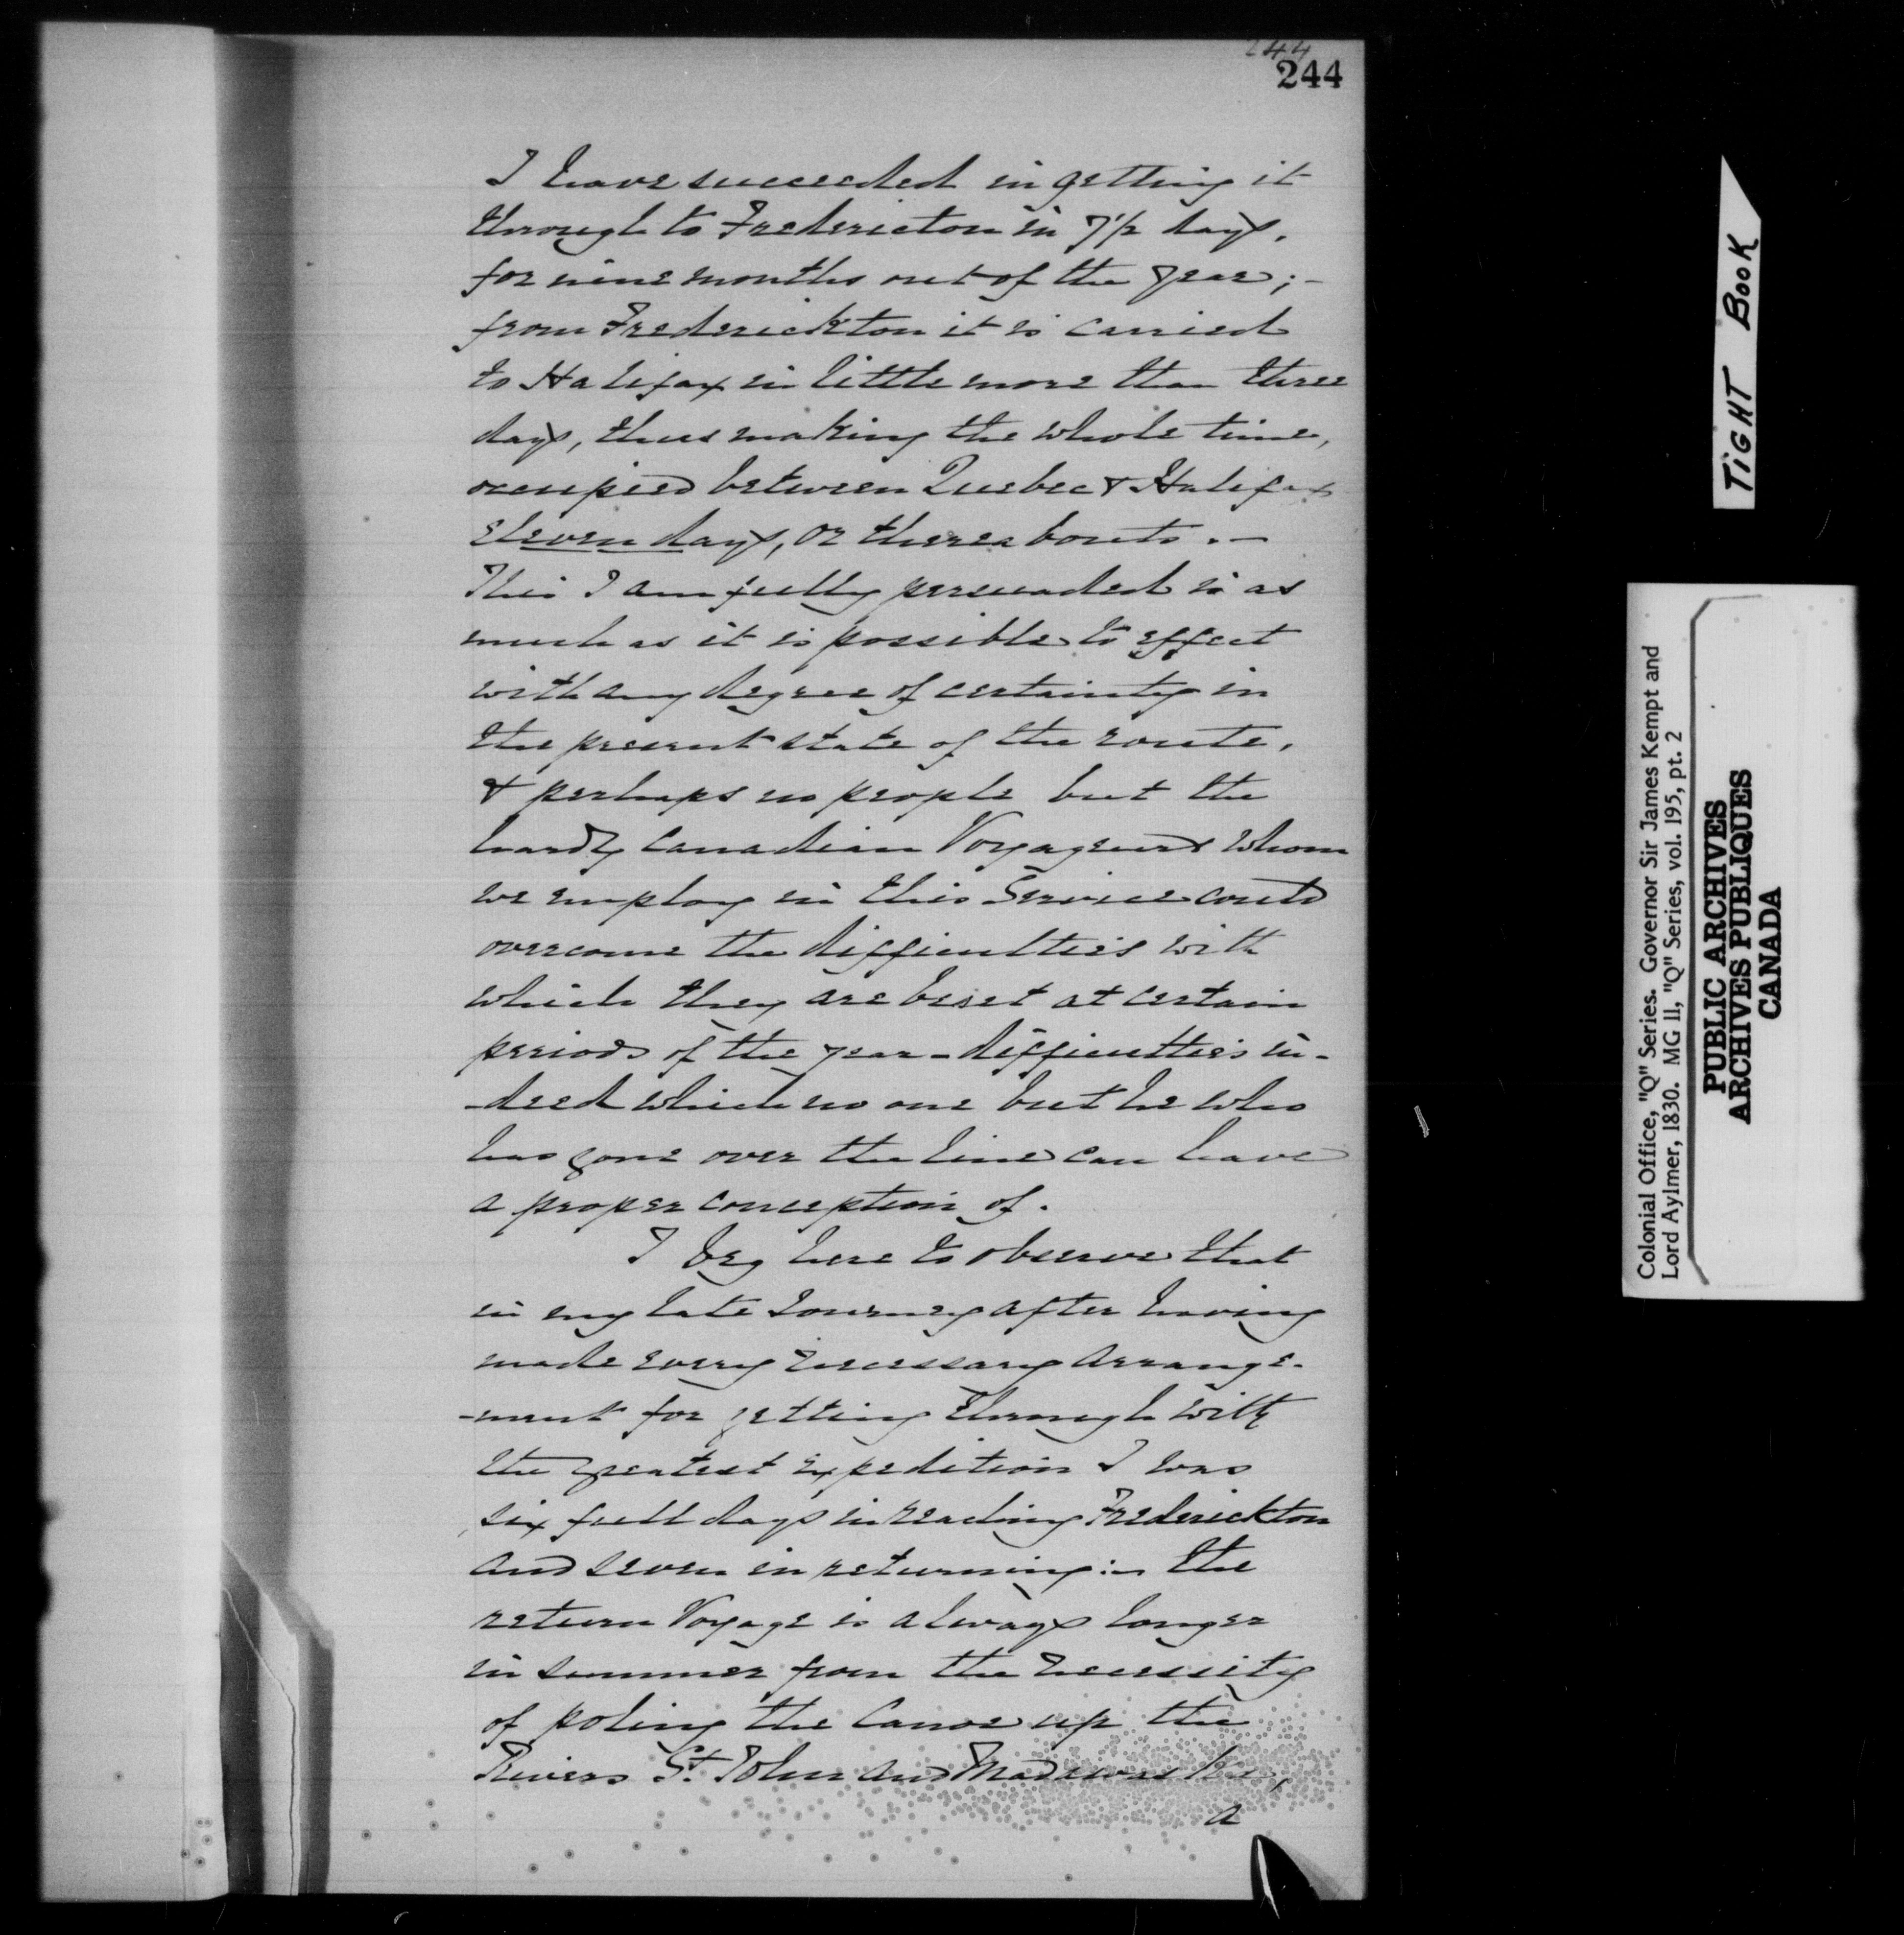 244
244
I have succeeded in getting it
through to Fredericton in 7 1/2 days,
for nine months out of the year;-
from Frederickton it is carried
to Halifax in little more than three
days, thus making the whole time,
occupied between Quebec & Halifax
eleven days, or thereabouts.-
This I am fully persuaded is as
much as it is possible to effect
with any degree of certainty in
the present state of the route,
& perhaps no people but the
hardy Canadian Voyageurs whom
we employ in this Service could
overcome the difficulties with
which they are beset at certain
periods of the year - difficulties in-
-deed which no one but he who
has gone over the line can have
a proper conception of.
I beg here to observe that
in my late Journey after having
made every necessary arrange-
-ment for getting through with
the greatest expedition I was
six full days in reaching Frederickton
and seven in returning:- the
return Voyage is always longer
in summer from the necessity
of poling the Canoe up the
Rivers St. John and Madawaska,
a
TIGHT BOOK
Colonial Office, "Q" Series. Governor Sir James Kempt and
Lord Aylmer, 1830. MG 11, "Q" Series, vol. 195, pt. 2
PUBLIC ARCHIVES
ARCHIVES PUBLIQUES
CANADA